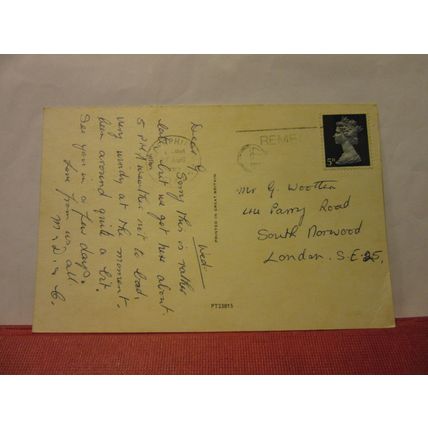 Wed—
Dear G.
Sorry this is rather
late but we got here about
5 P.M yes weather not to bad,
very windy at the moment,
been around quite a bit.
See you in a few days.
Love from us all
PRINTED IN GREAT BRITAIN
PT23815
REME
5P
Mr G Wootten
Parry Road
South Norwood
London. S.E.25.